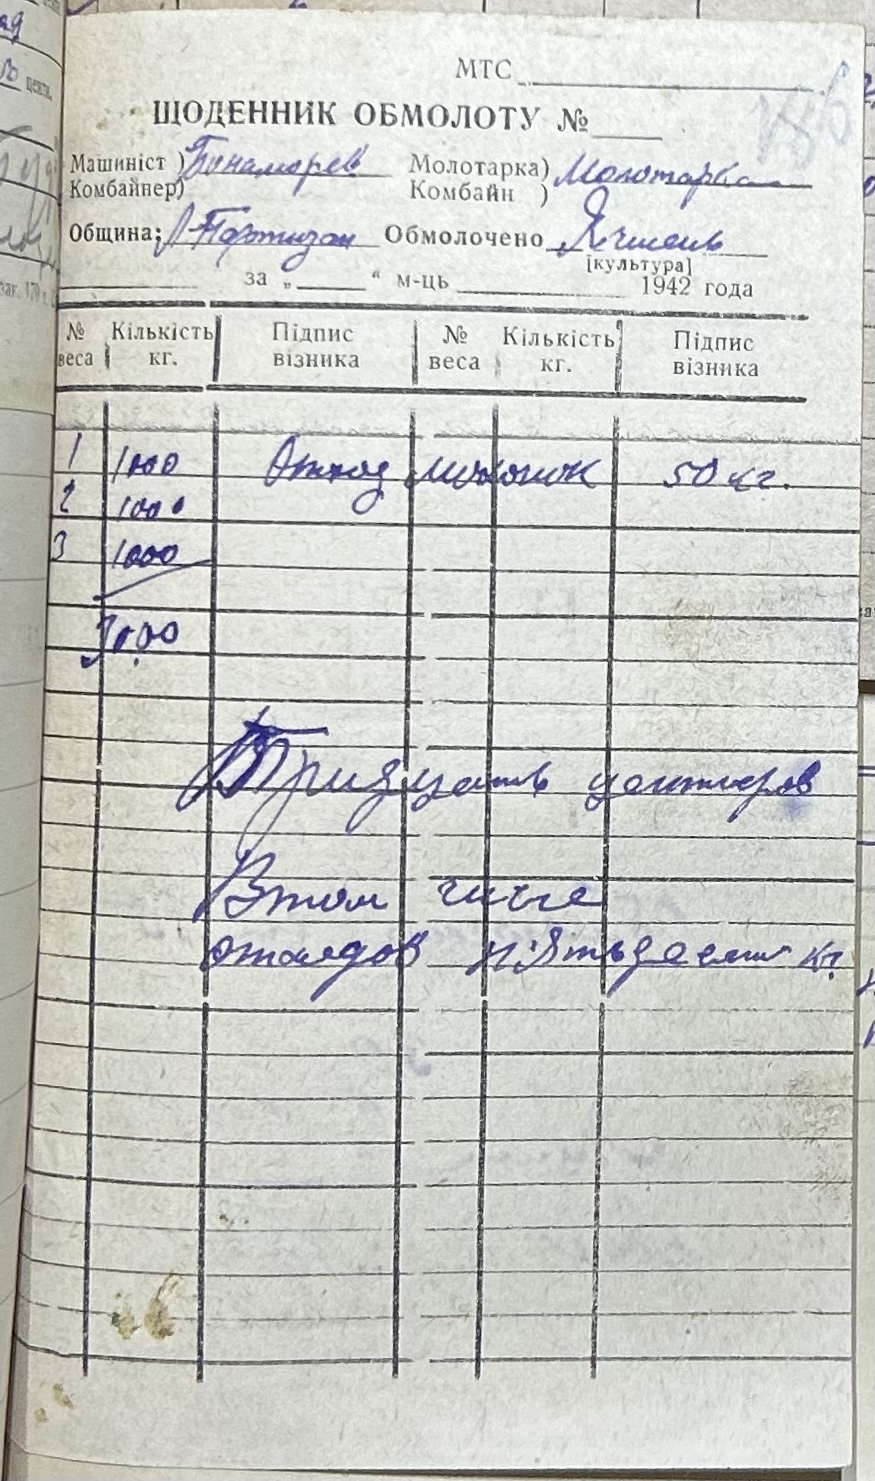 МТС
ЩОДЕННИК ОБМОЛОТУ №
Машиніст ) Панаморев Молотарка) Молотарка
Комбайнер) Комбайн )
Община: Партизан Обмолочено Ячмень
[культура]
за „ “ м-ць 1942 года
№ веса Кількість кг. Підпис візника № веса Кількість кг. Підпис візника
1 1000 Отход 50 кг.
2 1000
3 1000
3000
Тридцать центеров
Втом числе
отходов пятьдесят кг.